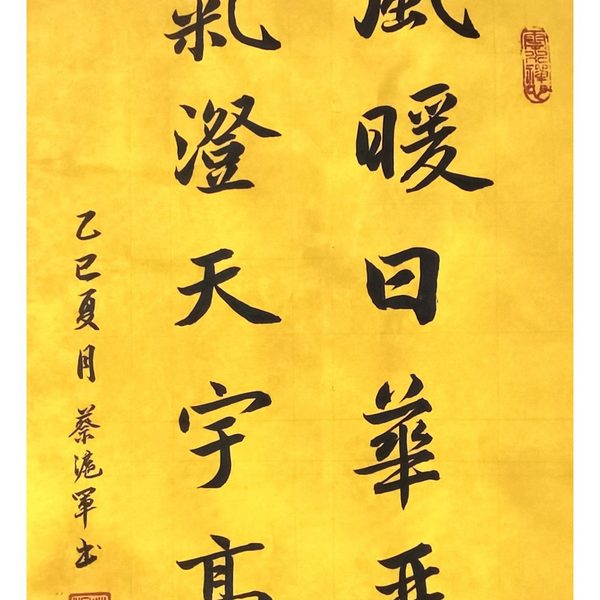 風暖日華
氣澄天宇高
乙巳夏月 蔡滬軍书